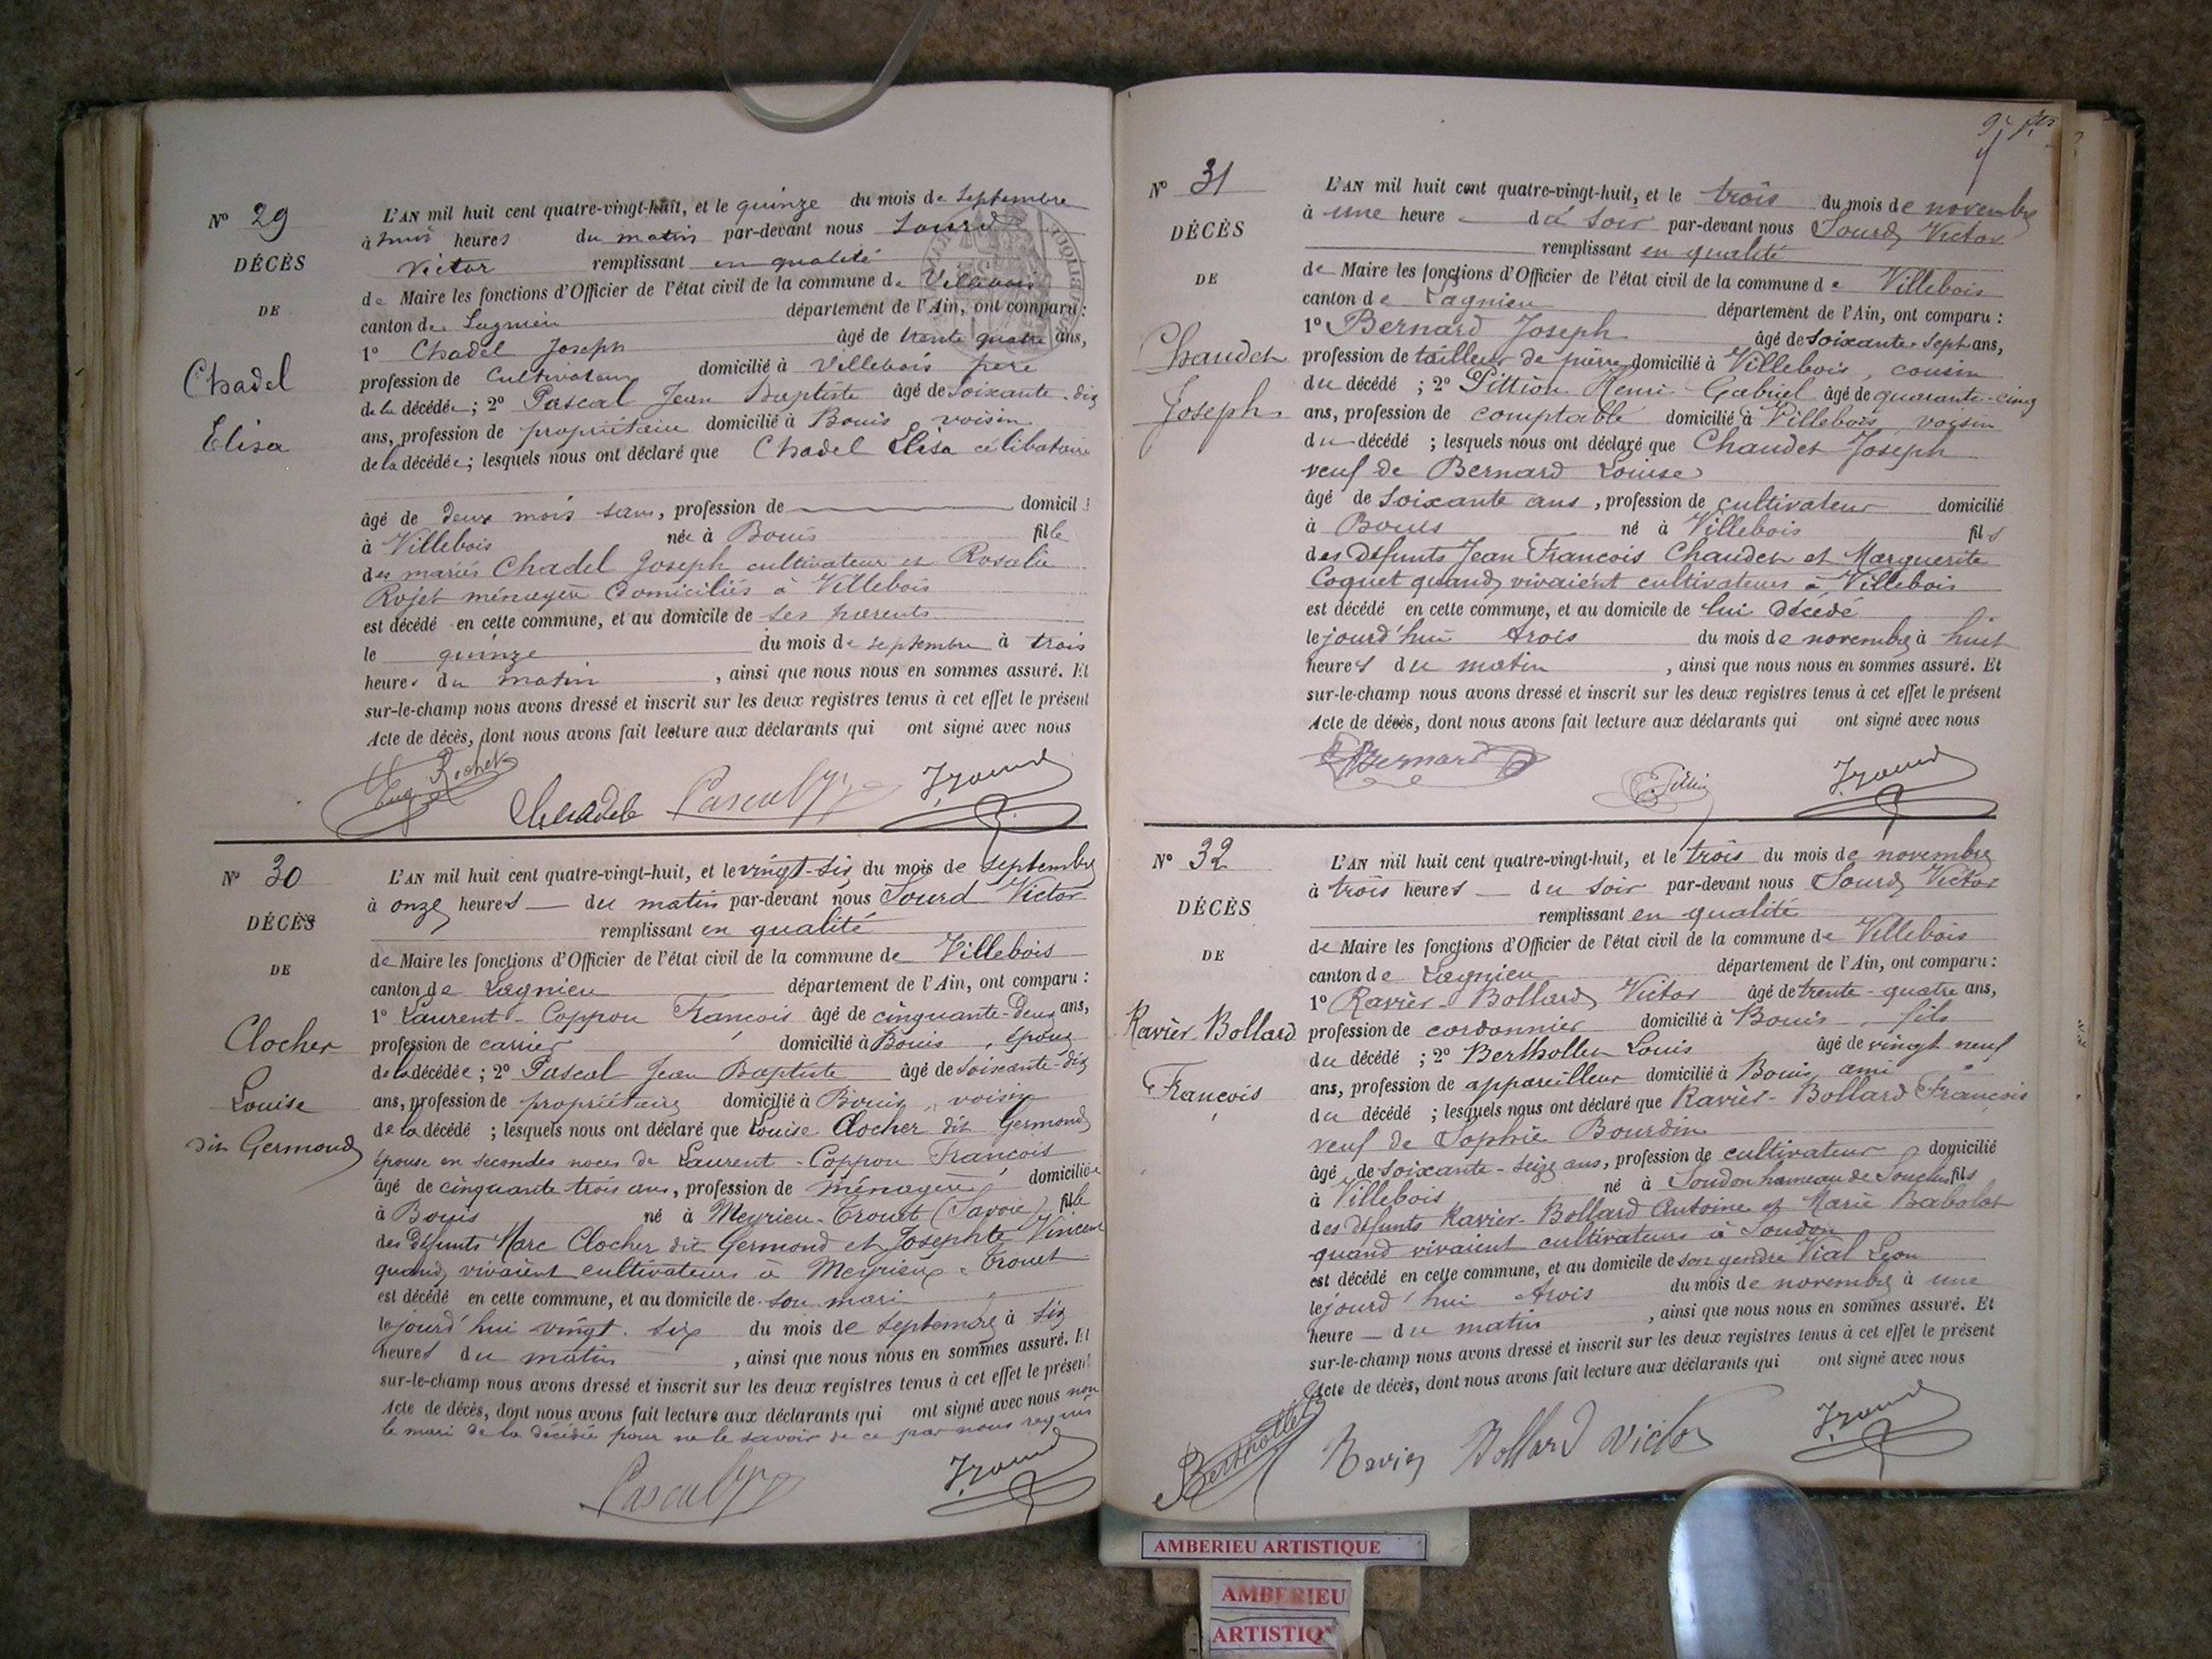 Nº 29
DÉCÈS
DE
Chadel
Elisa
L'AN mil huit cent quatre-vingt-huit, et le quinze du mois de Septembre
à huit heures du matin par-devant nous Sourd
Victor remplissant en qualité
de Maire les fonctions d'Officier de l'état civil de la commune de Villebois
canton de Lagnieu département de l'Ain, ont comparu :
1º Chadel Joseph âgé de trente quatre ans,
profession de Cultivateur domicilié à Villebois père
de la décédée ; 2º Pascal Jean Baptiste âgé de Soixante-dix
ans, profession de propriétaire domicilié à Bouis, voisin
de la décédée ; lesquels nous ont déclaré que Chadel Elisa célibataire
âgé de deux mois sans, profession de domicil
à Villebois née à Bouis fille
des mariés Chadel Joseph cultivateur et Rosalie
Rojet ménagère domiciliés à Villebois
est décédé en cette commune, et au domicile de ses parents
le quinze du mois de septembre à trois
heures du matin, ainsi que nous nous en sommes assuré. Et
sur-le-champ nous avons dressé et inscrit sur les deux registres tenus à cet effet le présent
Acte de décès, dont nous avons fait lecture aux déclarants qui ont signé avec nous
Rochet
Chadel Pascal V. Sourd
Nº 30
DÉCÈS
DE
Clocher
Louise
dit Germond
L'AN mil huit cent quatre-vingt-huit, et le vingt-six du mois de septembre
à onze heures du matin par-devant nous Sourd Victor
remplissant en qualité
de Maire les fonctions d'Officier de l'état civil de la commune de Villebois
canton de Lagnieu département de l'Ain, ont comparu :
1º Laurent-Coppou François âgé de cinquante-deux ans,
profession de carrier domicilié à Bouis, époux
de la décédée ; 2º Pascal Jean Baptiste âgé de Soixante-dix
ans, profession de propriétaire domicilié à Bouis, voisin
de la décédé ; lesquels nous ont déclaré que Louise Clocher dit Germond
épouse en secondes noces de Laurent-Coppou François
âgé de cinquante trois ans, profession de ménagère domiciliée
à Bouis né à Meyrieu-Trouet (Savoie) fille
des défunts Marc Clocher dit Germond et Josephte Vincent
quand vivaient cultivateurs à Meyrieux-Trouet
est décédé en cette commune, et au domicile de son mari
le jourd'hui vingt-six du mois de septembre à six
heures du matin, ainsi que nous nous en sommes assuré. Et
sur-le-champ nous avons dressé et inscrit sur les deux registres tenus à cet effet le présent
Acte de décès, dont nous avons fait lecture aux déclarants qui ont signé avec nous non
le mari de la décédée pour ne le savoir de ce par nous requis
Pascal V. Sourd
Nº 31
DÉCÈS
DE
Chaudet
Joseph
L'AN mil huit cent quatre-vingt-huit, et le trois du mois de novembre
à une heure du soir par-devant nous Sourd Victor
remplissant en qualité
de Maire les fonctions d'Officier de l'état civil de la commune de Villebois
canton de Lagnieu département de l'Ain, ont comparu :
1º Bernard Joseph âgé de soixante-sept ans,
profession de tailleur de pierre domicilié à Villebois, cousin
du décédé ; 2º Pittion Henri Gabriel âgé de quarante-cinq
ans, profession de comptable domicilié à Villebois, voisin
du décédé ; lesquels nous ont déclaré que Chaudet Joseph
veuf de Bernard Louise
âgé de Soixante ans, profession de cultivateur domicilié
à Bouis né à Villebois fils
des défunts Jean François Chaudet et Marguerite
Coquet quand vivaient cultivateurs à Villebois
est décédé en cette commune, et au domicile de lui décédé
le jourd'hui trois du mois de novembre à huit
heures du matin, ainsi que nous nous en sommes assuré. Et
sur-le-champ nous avons dressé et inscrit sur les deux registres tenus à cet effet le présent
Acte de décès, dont nous avons fait lecture aux déclarants qui ont signé avec nous
Bernard V. Sourd
Nº 32
DÉCÈS
DE
Ravier-Bollard
François
L'AN mil huit cent quatre-vingt-huit, et le trois du mois de novembre
à trois heures du soir par-devant nous Sourd Victor
remplissant en qualité
de Maire les fonctions d'Officier de l'état civil de la commune de Villebois
canton de Lagnieu département de l'Ain, ont comparu :
1º Ravier-Bollard Victor âgé de trente-quatre ans,
profession de cordonnier domicilié à Bouis, fils
du décédé ; 2º Berthollet Louis âgé de vingt neuf
ans, profession de appareilleur domicilié à Bouis ami
du décédé ; lesquels nous ont déclaré que Ravier-Bollard François
veuf de Sophie Bourdin
âgé de soixante-seize ans, profession de cultivateur domicilié
à Villebois né à Soudon hameau de fils
des défunts Ravier-Bollard Antoine et Marie Babolat
quand vivaient cultivateurs à Soudon
est décédé en cette commune, et au domicile de son gendre Vial Léon
le jourd'hui trois du mois de novembre à une
heure du matin, ainsi que nous nous en sommes assuré. Et
sur-le-champ nous avons dressé et inscrit sur les deux registres tenus à cet effet le présent
Acte de décès, dont nous avons fait lecture aux déclarants qui ont signé avec nous
Berthollet Ravier Bollard Victor V. Sourd
AMBERIEU ARTISTIQUE
AMBERIEU
ARTISTIQ